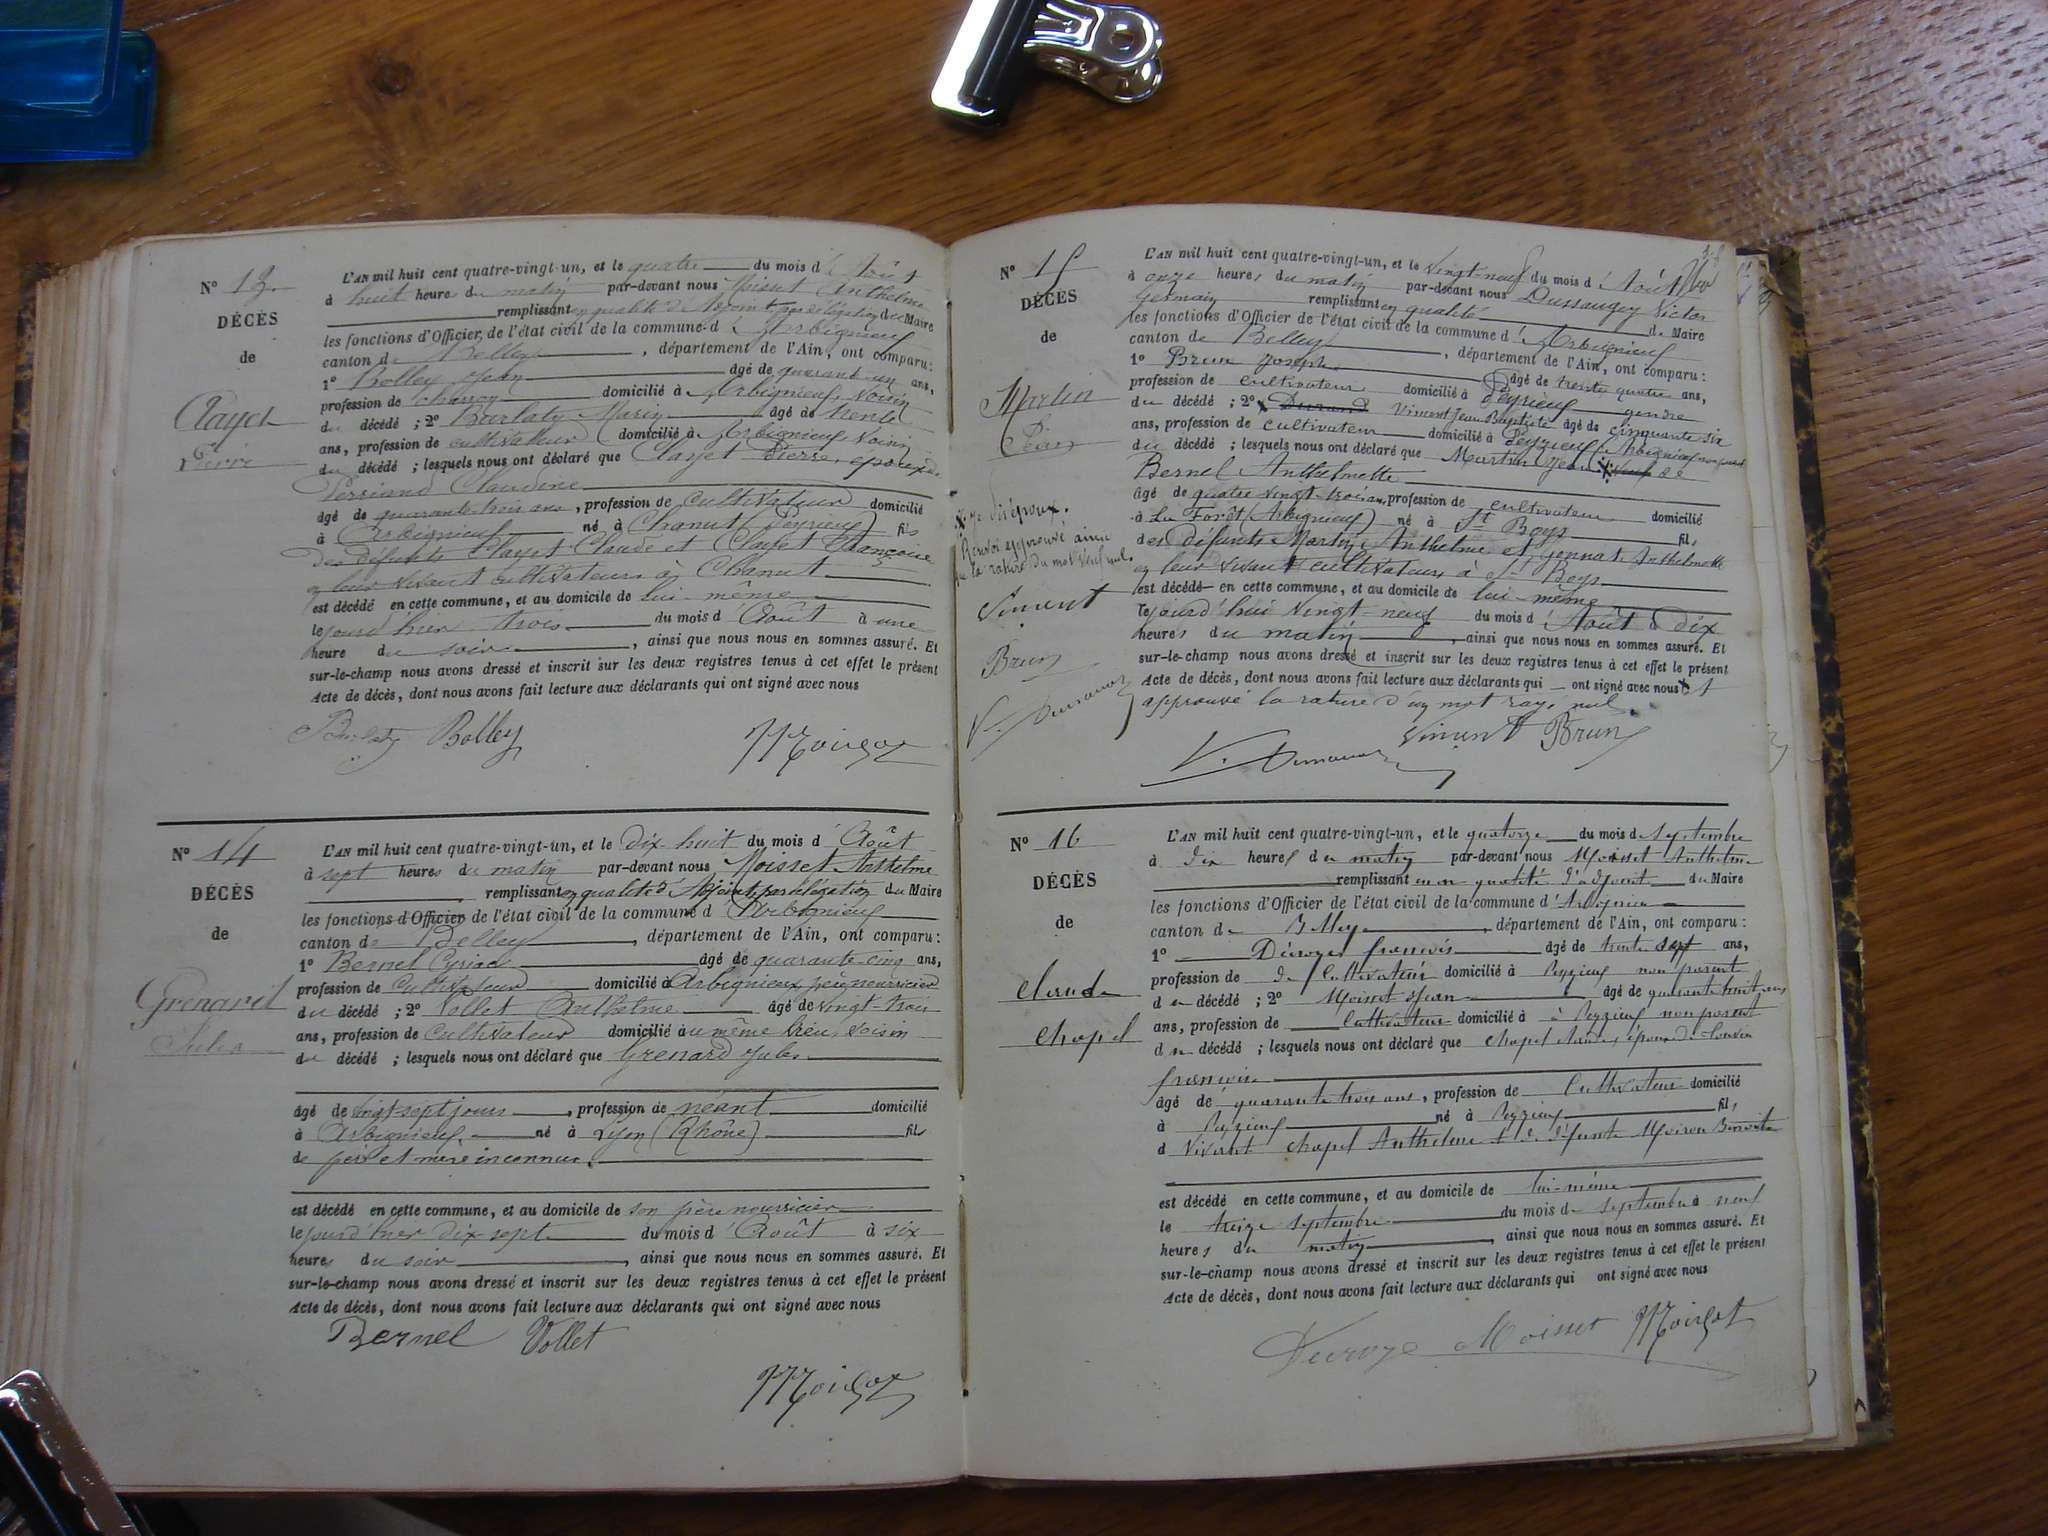 N° 13.
DÉCÈS
de
Clayet
Pierre
L'AN mil huit cent quatre-vingt-un, et le quatre du mois d'Août
à huit heures du matin par-devant nous Moisset Anthelme
remplissant en qualité d'Adjoint par délégation du Maire
les fonctions d'Officier de l'état civil de la commune d'Arbignieu
canton de Belley, département de l'Ain, ont comparu :
1° Bolley Jean âgé de quarante un ans,
profession de domicilié à Arbignieu, voisin
du décédé ; 2° Barlaty Marin âgé de trente
ans, profession de cultivateur domicilié à Arbignieu, voisin
du décédé ; lesquels nous ont déclaré que Clayet Pierre, époux de
Perriand Claudine
âgé de quarante trois ans, profession de cultivateur domicilié
à Arbignieu né à Chanut (Peyrieu) fils
des défunts Clayet Claude et Clayet Françoise
en leur vivant cultivateurs à Chanut
est décédé en cette commune, et au domicile de lui-même
le jour d'hier trois du mois d'Août à une
heure du soir, ainsi que nous nous en sommes assuré. Et
sur-le-champ nous avons dressé et inscrit sur les deux registres tenus à cet effet le présent
Acte de décès, dont nous avons fait lecture aux déclarants qui ont signé avec nous
Barlaty Bolley
N° 14
DÉCÈS
de
Grenard
Jules
L'AN mil huit cent quatre-vingt-un, et le dix-huit du mois d'Août
à sept heures du matin par-devant nous Moisset Anthelme
remplissant en qualité d'Adjoint par délégation du Maire
les fonctions d'Officier de l'état civil de la commune d'Arbignieu
canton de Belley, département de l'Ain, ont comparu :
1° Bernel Cyriac âgé de quarante-cinq ans,
profession de cultivateur domicilié à Arbignieu, père nourricier
du décédé ; 2° Vollet Anthelme âgé de vingt-trois
ans, profession de cultivateur domicilié au même lieu, voisin
du décédé ; lesquels nous ont déclaré que Grenard Jules
âgé de vingt-sept jours, profession de néant domicilié
à Arbignieu né à Lyon (Rhône) fils
de père et mère inconnus.
est décédé en cette commune, et au domicile de son père nourricier
le jour d'hier dix-sept du mois d'Août à six
heures du soir, ainsi que nous nous en sommes assuré. Et
sur-le-champ nous avons dressé et inscrit sur les deux registres tenus à cet effet le présent
Acte de décès, dont nous avons fait lecture aux déclarants qui ont signé avec nous
Bernel Vollet
N° 15
DÉCÈS
de
Martin
Jean
L'AN mil huit cent quatre-vingt-un, et le vingt-neuf du mois d'Août
à onze heures du matin par-devant nous Dussauguy Victor
Germain remplissant en qualité de Maire
les fonctions d'Officier de l'état civil de la commune d'Arbignieu
canton de Belley, département de l'Ain, ont comparu :
1° Brun Joseph âgé de trente quatre ans,
profession de cultivateur domicilié à Peyzieu gendre
du décédé ; 2° Durand Vincent Jean Baptiste âgé de cinquante six
ans, profession de cultivateur domicilié à Peyzieu (Arbignieu) non parent
du décédé ; lesquels nous ont déclaré que Martin Jean veuf de
Bernel Anthelmette
âgé de quatre vingt-trois ans, profession de cultivateur domicilié
à La Forêt (Arbignieu) né à St Boys fils
des défunts Martin Anthelme et Jennat Anthelmette
en leur vivant cultivateurs à St Boys
est décédé en cette commune, et au domicile de lui-même
le jourd'hui vingt-neuf du mois d'Août à dix
heures du matin, ainsi que nous nous en sommes assuré. Et
sur-le-champ nous avons dressé et inscrit sur les deux registres tenus à cet effet le présent
Acte de décès, dont nous avons fait lecture aux déclarants qui ont signé avec nous et
approuvé la rature d'un mot rayé nul.
Vincent Brun
époux.
Renvoi approuvé ainsi
que la rature du mot veuf nul.
Vincent
Brun
N° 16
DÉCÈS
de
Claude
Chapel
L'AN mil huit cent quatre-vingt-un, et le quatorze du mois de Septembre
à dix heures du matin par-devant nous Moisset Anthelme
remplissant en qualité d'adjoint du Maire
les fonctions d'Officier de l'état civil de la commune d'Arbignieu
canton de Belley, département de l'Ain, ont comparu :
1° Décroze françois âgé de trente sept ans,
profession de de Cultivateur domicilié à Peyzieu non parent
du décédé ; 2° Moisset Jean âgé de quarante huit ans
ans, profession de Cultivateur domicilié à à Peyzieu non parent
du décédé ; lesquels nous ont déclaré que Chapel Claude, époux de
françoise
âgé de quarante trois ans, profession de Cultivateur domicilié
à Peyzieu né à Peyzieu fils
d Vivant Chapel Anthelme & de défunte Moiron Benoite
est décédé en cette commune, et au domicile de lui-même
le treize septembre du mois de septembre à neuf
heures du matin, ainsi que nous nous en sommes assuré. Et
sur-le-champ nous avons dressé et inscrit sur les deux registres tenus à cet effet le présent
Acte de décès, dont nous avons fait lecture aux déclarants qui ont signé avec nous
Decroze Moisset